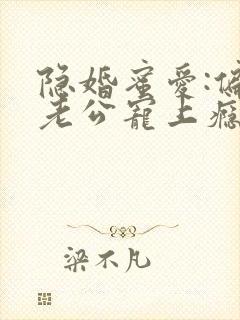 隐婚蜜爱:偏
老公宠上瘾
梁不凡